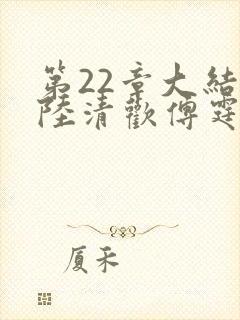 第22章大结
陸清歡傅霆
厦禾